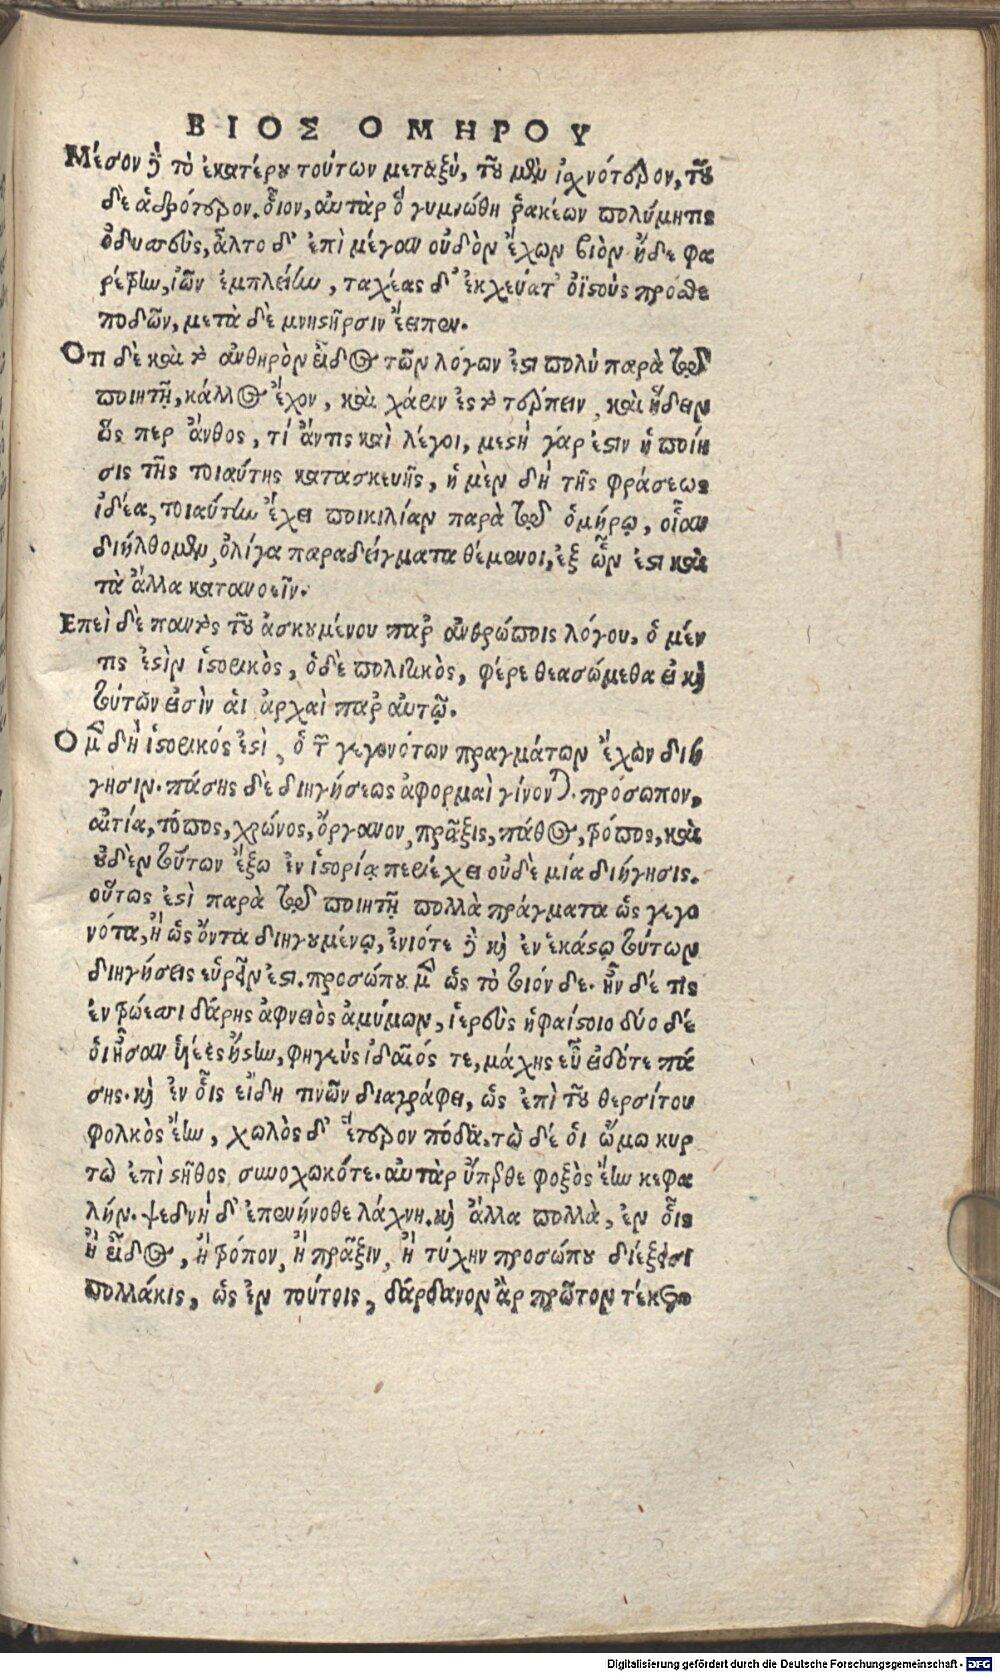 ΒΙΟΣ ΟΜΗΡΟΥ
Μέσον δὲ τὸ ἑκατέρου τούτων μεταξύ, τοῦ μὲν ἰσχνότερον, τοῦ
δὲ ἁδρότερον. οἷον, αὐτὰρ ὁ γυμνώθη ῥακέων πολύμητις
ὀδυσσεὺς, ἆλτο δ' ἐπὶ μέγαν οὐδὸν ἔχων βιὸν ἠδὲ φα
ρέτρην, ἰῶν ἐμπλείην, ταχέας δ' ἐκχεύατ' ὀϊστοὺς πρόσθε
ποδῶν, μετὰ δὲ μνηστῆρσιν ἔειπεν.
Οτι δὲ καὶ τὸ ἀνθηρὸν εἶδος τῶν λόγων ἐστὶ πολὺ παρὰ τῷ
ποιητῇ, κάλλος ἔχον, καὶ χάριν ἐς τὸ τέρπειν, καὶ ἥδειν
ὥς περ ἄνθος, τί ἄντις καὶ λέγοι, μεστὴ γάρ ἐστιν ἡ ποίη
σις τῆς τοιαύτης κατασκευῆς, ἡ μὲν δὴ τῆς φράσεως
ἰδέα, τοιαύτην ἔχει ποικιλίαν παρὰ τῷ ὁμήρῳ, οἵαν
διήλθομεν, ὀλίγα παραδείγματα θέμενοι, ἐξ ὧν ἐστι καὶ
τὰ ἄλλα κατανοεῖν.
Επεὶ δὲ παντὸς τοῦ ἀσκουμένου παρ' ἀνθρώποις λόγου, ὁ μέν
τις ἐστὶν ἱστορικὸς, ὁ δὲ πολιτικὸς, φέρε θεασώμεθα εἰ καὶ
τούτων εἰσὶν ἁι ἀρχαὶ παρ' αὐτῷ.
Ο μὲν δὴ ἱστορικός ἐστὶ, ὁ τῶν γεγονότων πραγμάτων ἔχων διή
γησιν. πάσης δὲ διηγήσεως ἀφορμαὶ γίνονται. πρόσωπον,
αἰτία, τόπος, χρόνος, ὄργανον, πρᾶξις, πάθος, τρόπος, καὶ
οὐδὲν τούτων ἔξω ἐν ἱστορίᾳ περιέχει οὐδὲ μία διήγησις.
οὕτως ἐστὶ παρὰ τῷ ποιητῇ πολλὰ πράγματα ὡς γεγο
νότα, ἢ ὡς ὄντα διηγουμένῳ, ἐνιότε δὲ καὶ ἐν ἑκάστῳ τούτων
διηγήσεις εὑρεῖν ἐστι. προσώπου μὲν ὡς τὸ τιόν δε. ἦν δέ τις
ἐν τρώεσσι δάρης ἀφνειὸς ἀμύμων, ἱερεὺς ἡφαίστοιο δύο δέ
ὁι ἦσαν υἱέες ἤστην, φηγεὺς ἰδαῖός τε, μάχης εὖ εἰδότε πά
σης. καὶ ἐν οἷς εἴδη τινῶν διαγράφει, ὡς ἐπὶ τοῦ θερσίτου
φολκὸς ἔην, χωλὸς δ' ἕτερον πόδα. τὼ δέ ὁι ὤμω κυρ
τὼ ἐπὶ στῆθος συνοχωκότε. αὐτὰρ ὕπερθε φοξὸς ἔην κεφα
λήν. ψεδνὴ δ' ἐπενήνοθε λάχνη. καὶ ἄλλα πολλὰ, ἐν οἷς
ἢ εἶδος, ἢ τρόπον, ἢ πρᾶξιν, ἢ τύχην προσώπου διέξεισι
πολλάκις, ὡς ἐν τούτοις, δάρδανον ἂρ πρῶτον τέκετο
Digitalisierung gefördert durch die Deutsche Forschungsgemeinschaft - DFG